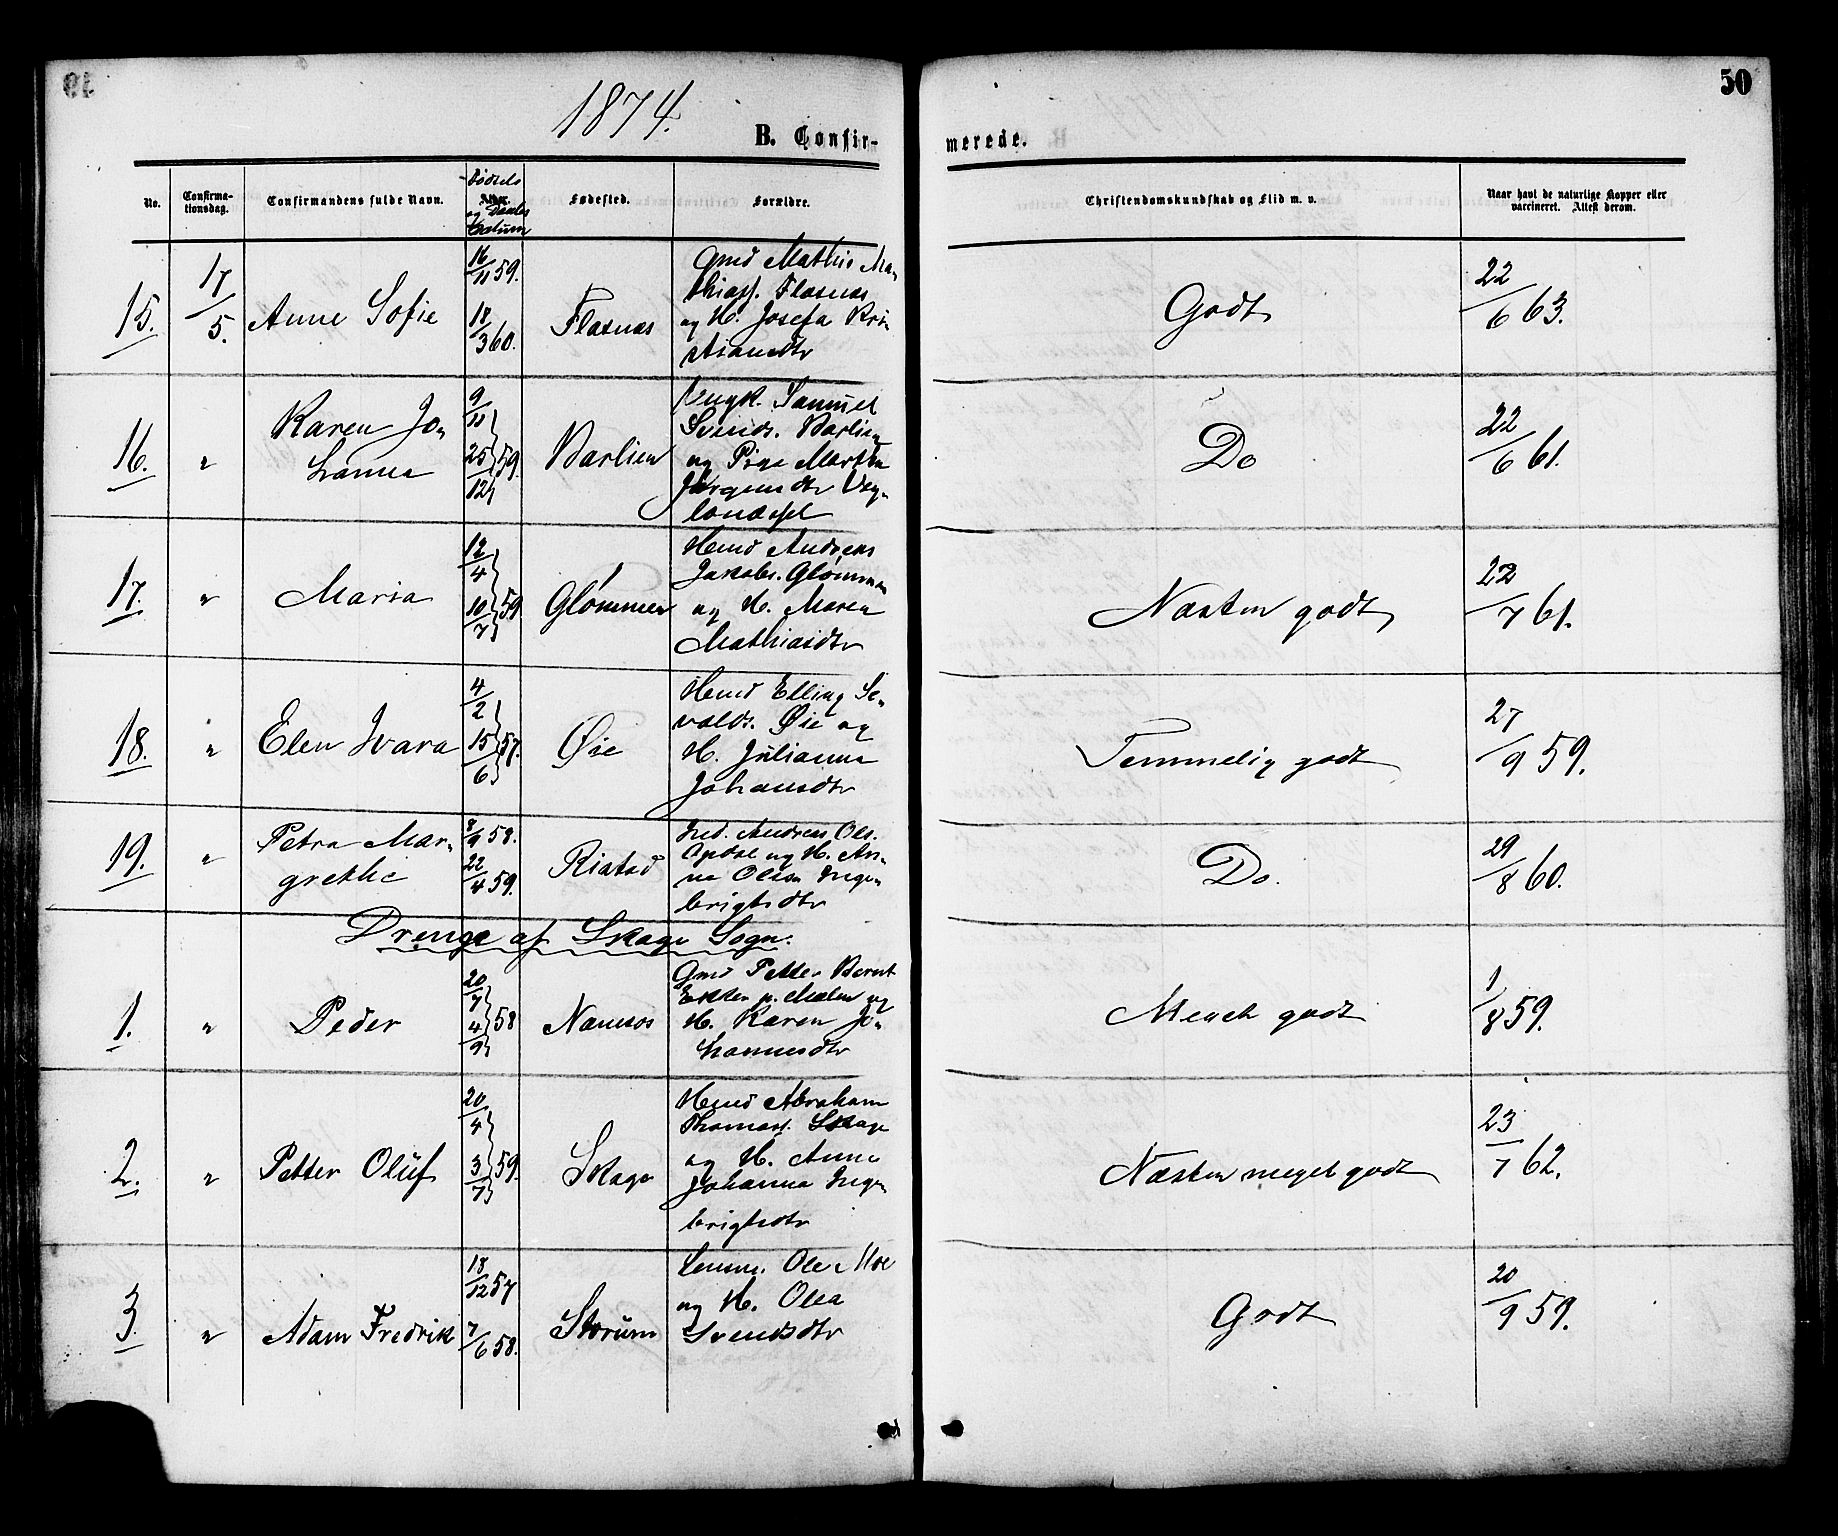 1874.
50
B. Confir-
merede.
No.
Confirma-
tionsdag.
Confirmandens fulde Navn.
Fødsels
og Daabs
Datum
Fødested.
Forældre.
Christendomskundskab og Flid m. v.
Naar havt de naturlige Kopper eller
vaccineret. Attest derom.
15.
17/5.
Anne Sofie
16/11 59.
18/3 60.
Flasnæs
Gmd Mathis Ma-
thiass. Flasnæs
og H. Josefa Kri-
stiansdtr
Godt
22/6 63.
16.
"
Karen Jo-
hanna
9/11
25/12 59.
Barlien
Ungk. Samuel
Svends. Barlien
og Pige Martha
Jørgensdtr
Do
22/6 61.
17.
"
Maria
12/4
10/7 59
Glømmen
Hmd Andreas
Jakobs. Glømmen
og H. Maren
Mathiasdtr
Næsten godt
22/7 61.
18.
"
Elen Ivara
4/2
15/6 57.
Øie
Hmd Elling Se-
valds. Øie og
H. Julianna
Johansdtr
Temmelig godt
27/9 59.
19.
"
Petra Mar-
grethe
8/9 58.
22/4 59.
Ristad
Ind. Andreas Ols.
Opdal og H. An-
na Olesa Inge-
brigtsdtr
Do.
29/8 60.
Drenge af Skage Sogn.
1.
"
Peder
20/7
4/9 58
Namsos
Gmd Petter Bernt
p. Mælen og
H. Karen Jo-
hannesdtr
Meget godt
1/8 59.
2.
"
Petter Oluf
20/4
3/7 59.
Skage
Hmd Abraham
Thomass. Skage
og H. Anne
Johanna Inge-
brigtsdtr
Næsten meget godt
23/7 62.
3.
"
Adam Fredrik
18/12 57
7/6 58.
Storum
Ole Moe
og H. Olea
Svendsdtr
Godt
20/9 59.